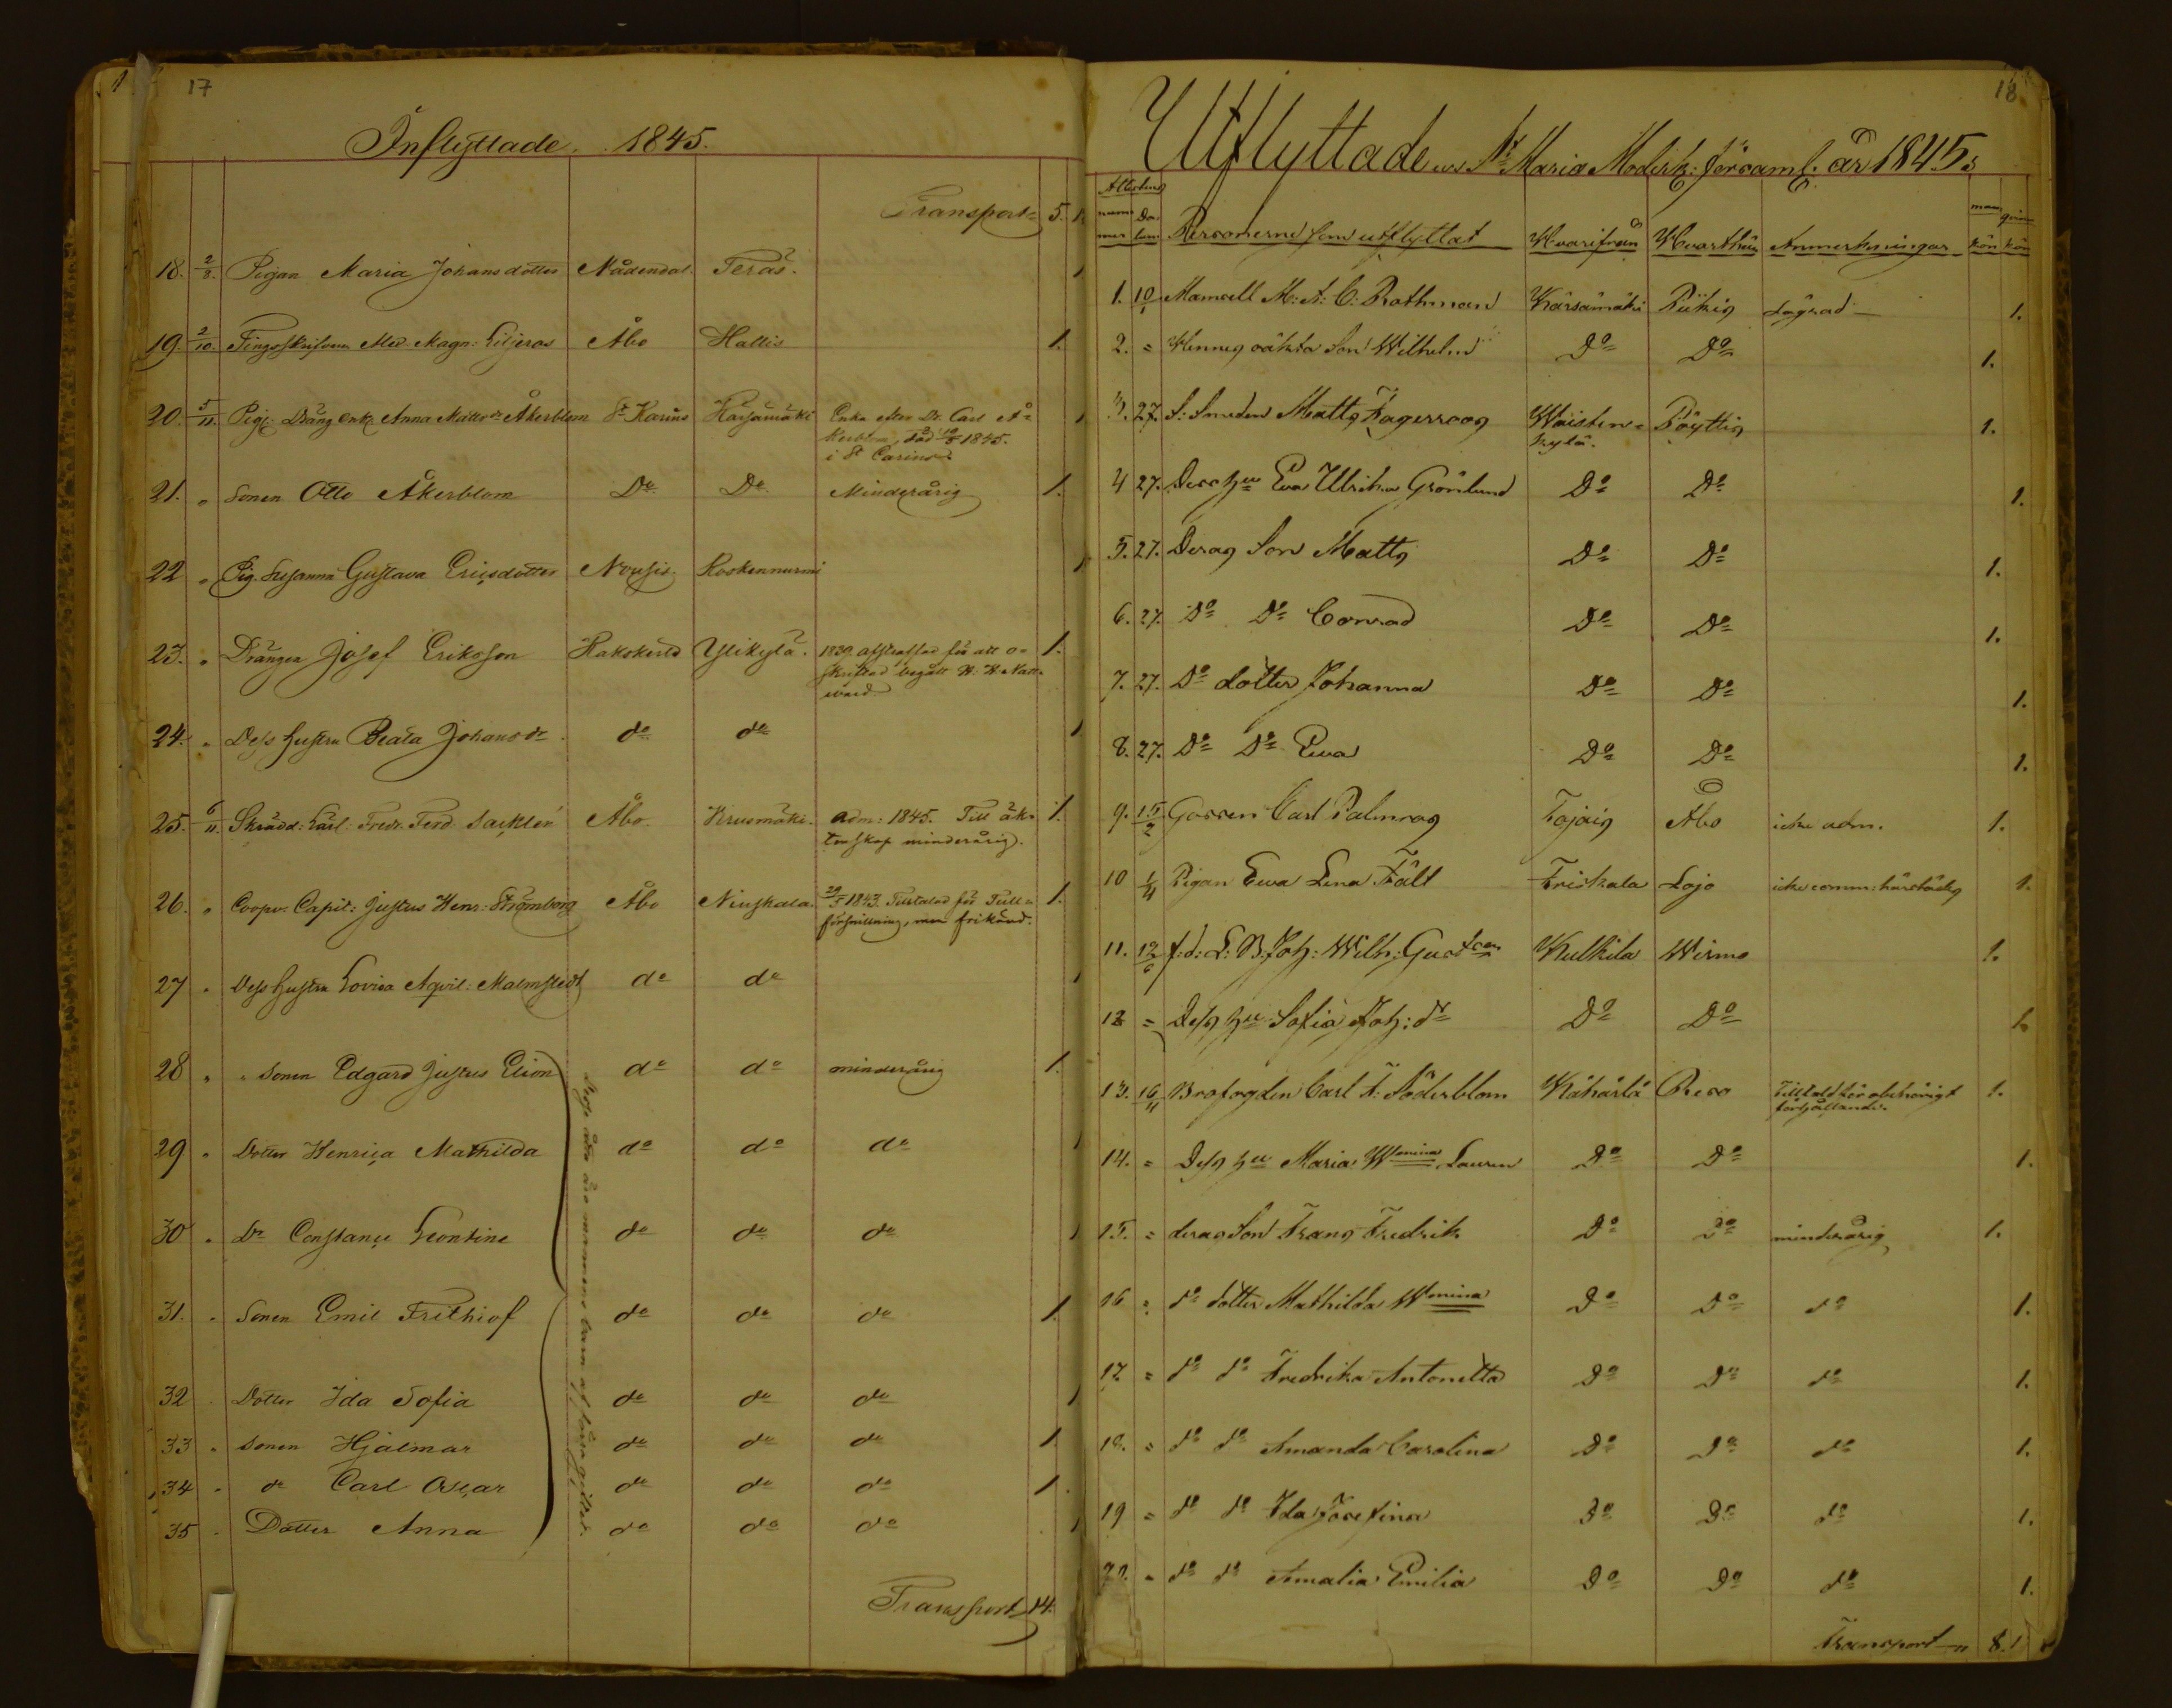 17
Inflyttade. 1845.
Transport 5.
18. 2/8. Pigan Maria Johansdotter Nådendal. Teräs.
19. 2/10. Tingsskrifvaren Alex. Magn: Liljeros Åbo Hallis 1.
20. 5/11. Pig: Dräng enk. Anna Mattsdr Åkerblom St Karins Kärsämäki Enka efter Dr. Carl Åkerblom, död 1845. i St Carins.
21. " Sonen Otto Åkerblom Do Do Minderårig 1.
22 " Pig. Susanna Gustava Ericsdotter Nousis. Ruokennurmi
23. " Drängen Josef Eriksson Hakokerta Ylikylä. 1839. afstraffad för att o-skriftad begått H. H. Natt-ward 1.
24. " Dess hustru Beata Johansdr do do
25. 6/11. Skrädd: Lärl: Fredr. Ferd. Sacklén Åbo. Krusmäki. Adm: 1845. Till äktenskap minderårig. 1.
26. " Coopv. Capit: Justus Henr: Strömborg Åbo Niuskala. 1843. Tilltalad för Tull-försnillning, men frikänd. 1.
27 " Dess hustru Lovisa Aqvil: Malmstedt do do
28 " " Sonen Edgard Justus Elion do do minderårig 1.
29 " Dotter Henrica Mathilda do do do
30 " Dr Constance Leontine do do do
31. " Sonen Emil Frithiof do do do 1.
32 " Dotter Ida Sofia do do do
33 " Sonen Hjalmar do do do 1
34 " do Carl Oscar do do do 1.
35 " Dotter Anna do do do
Transport 14.
18
Utflyttade urs St Maria Moderk: församl. år 1845.
Attestens
nummer Datum Personerne som utflyttat Hvarifrån Hvarthän Anmerkningar mankön qvinkön
1. 10/1 Mamsell M: A: C: Rothman Kärsämäki Piikis lägrad 1.
2. = Hennes oäkta Son Wilhelm Do Do 1.
3. 27. S: Smeden Matts Fagerroos Wäistenkylä. Pöyttis 1.
4 27. Dess hu Eva Ulrika Grönlund Do Do 1.
5. 27. Deras Son Matts Do Do 1.
6. 27. Do Do Conrad Do Do 1.
7. 27. Do dotter Johanna Do Do 1.
8. 27. Do Do Ewa Do Do 1.
9. 15/2 Gossen Carl Palmroos Tojais Åbo icke adm. 1.
10 1/4 Pigan Ewa Lena Fält Friskala Lojo icke comm: härstädes 1.
11. 12/6 f:d: L: B. Joh: Wilh: Gustson Kulkila Wirmo 1.
12 = Dess hu Sofia Joh: dr Do Do 1.
13. 16/4 Brofogden Carl F: Söderblom Kähärlä Reso Tilltald för obehörigt förhållande. 1.
14. = Dess hu Maria Wmina Lauren Do Do 1.
15. = deras Son Frans Fredrik Do Do minderårig 1.
16 = do dotter Mathilda Wmina Do Do do 1.
17 = do do Fredrika Antonetta Do Do do 1.
18. = do do Amanda Carolina Do Do do 1.
19 = do do Ida Josefina Do Do do 1.
20. = do do Amalia Emilia Do Do do 1.
Transport 8.